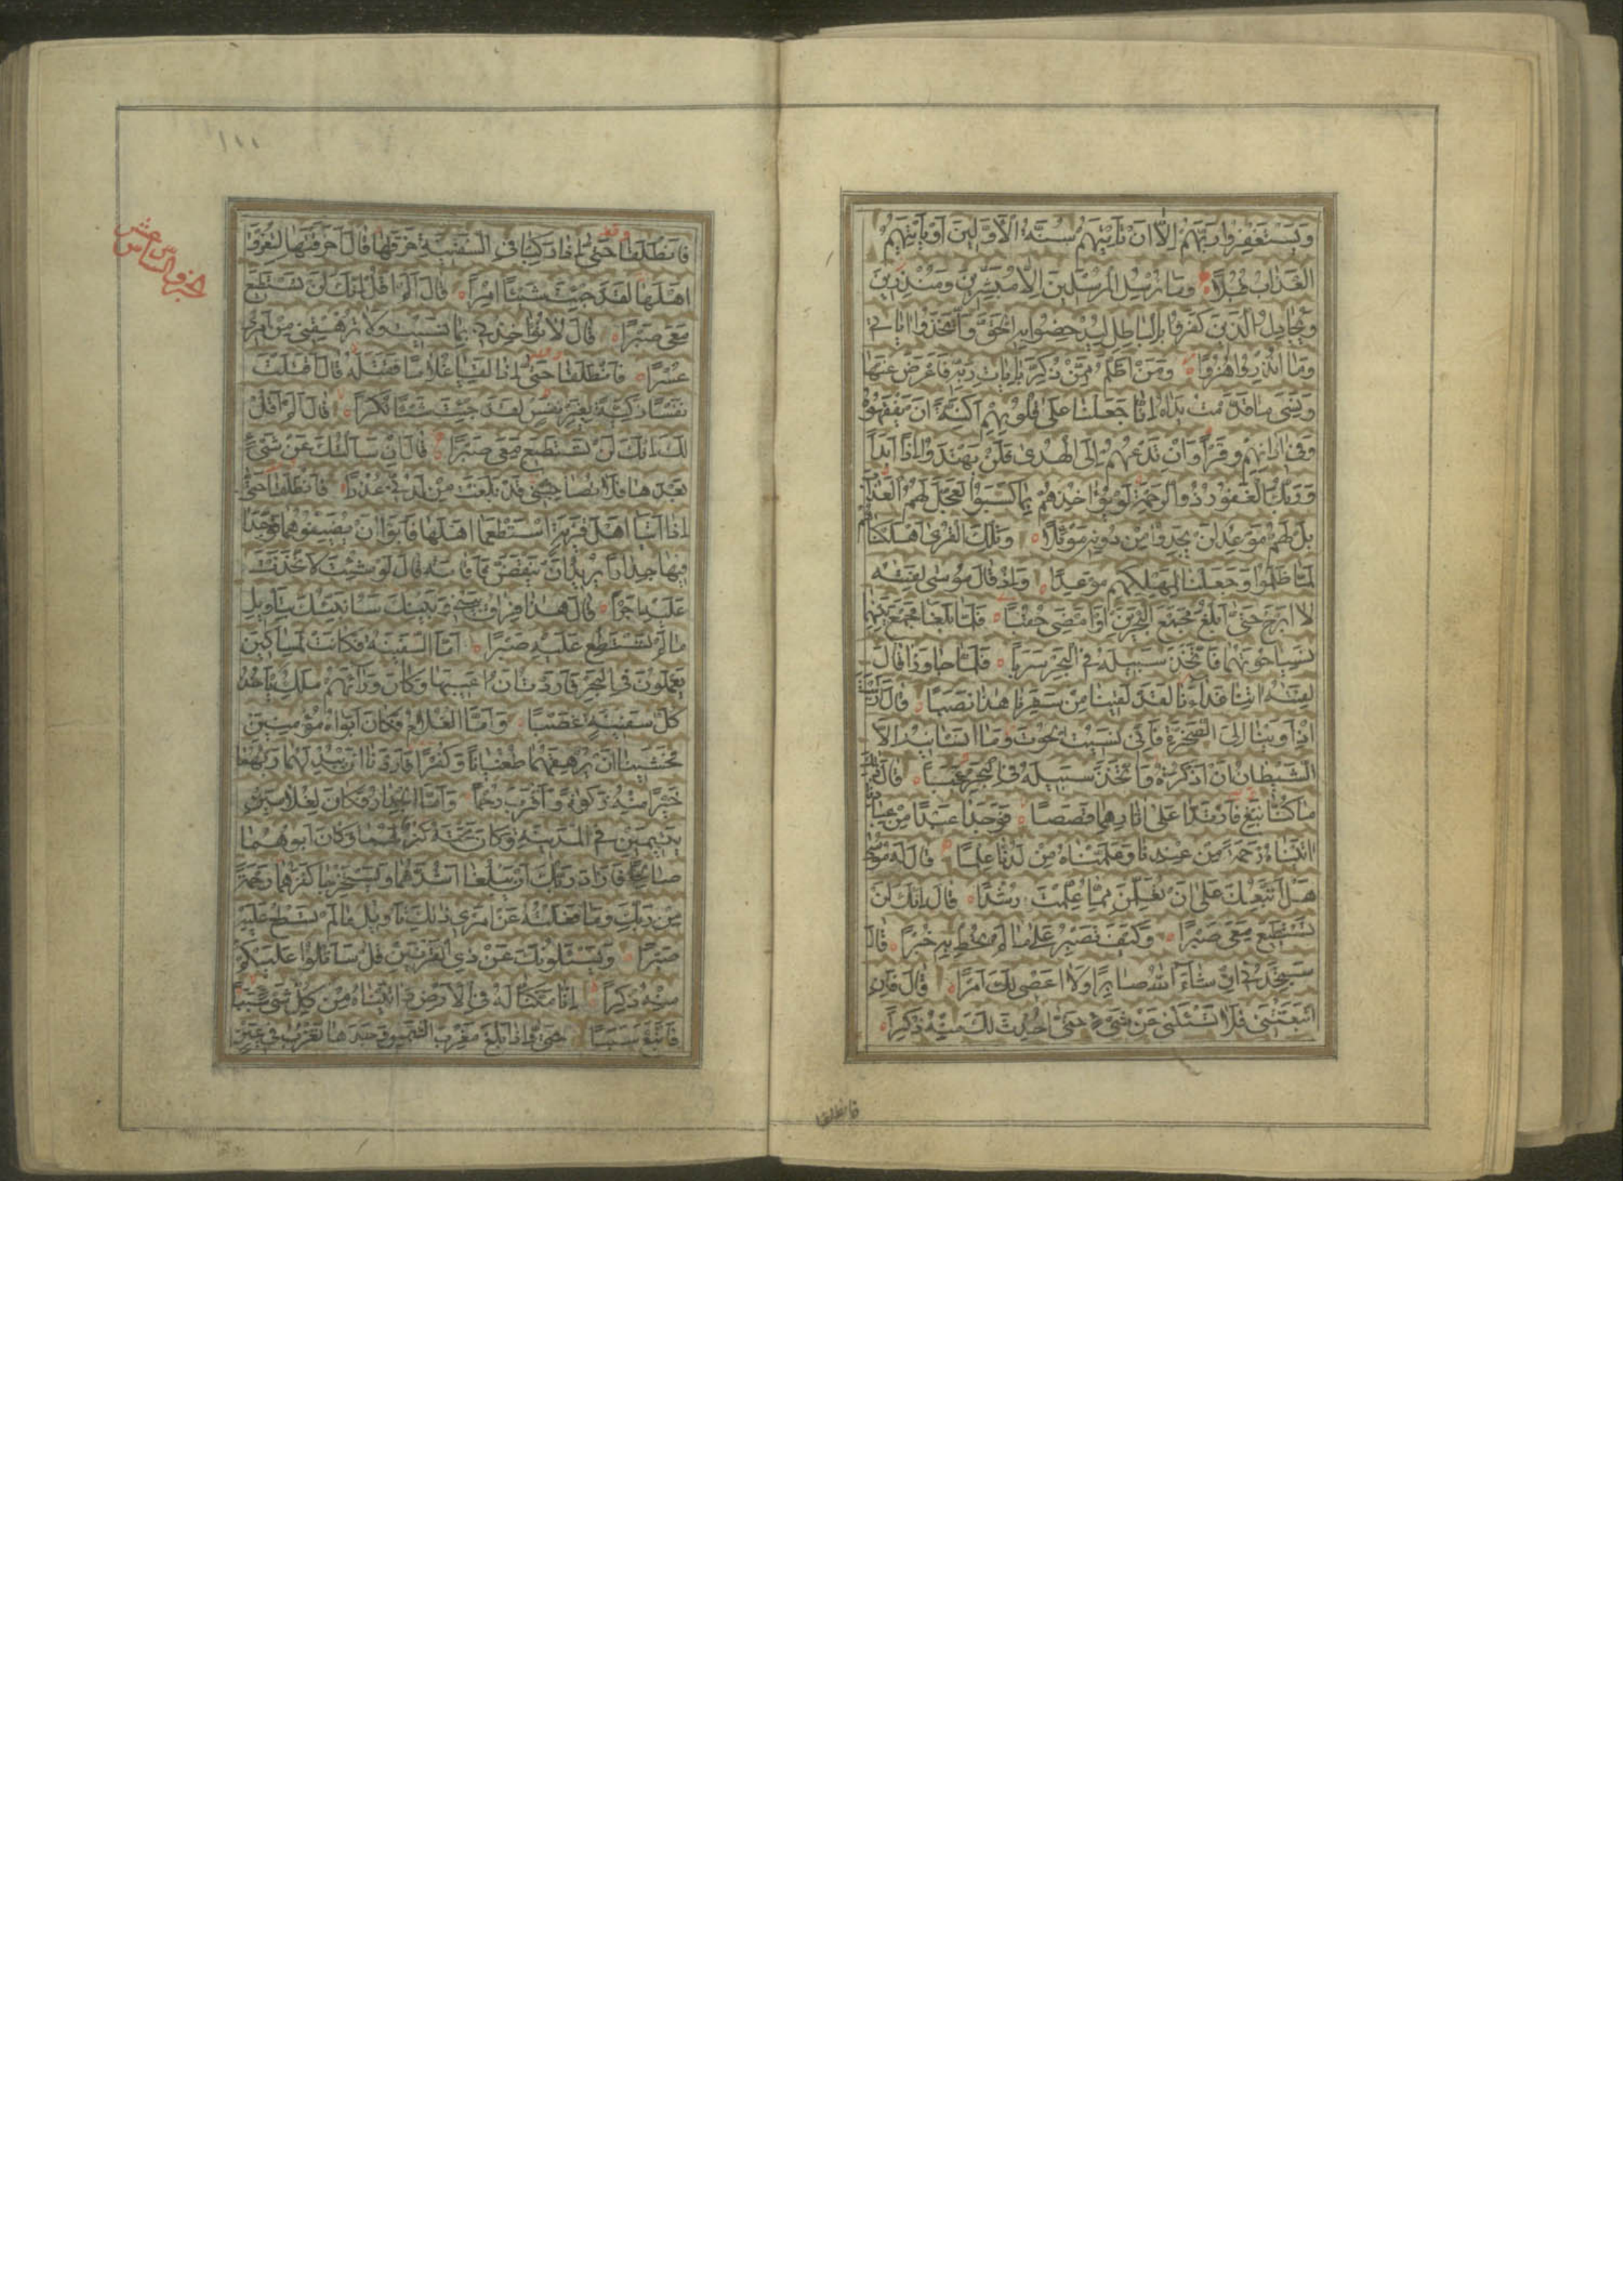 وَيَسْتَغْفِرُوا رَبَّهُمْ اِلَّا اَنْ تَاْتِيَهُمْ سُنَّةُ الْاَوَّلِينَ اَوْ يَاْتِيَهُمُ
الْعَذَابُ قُبُلًا وَمَا نُرْسِلُ الْمُرْسَلِينَ اِلَّا مُبَشِّرِينَ وَمُنْذِرِينَ
وَيُجَادِلُ الَّذِينَ كَفَرُوا بِالْبَاطِلِ لِيُدْحِضُوا بِهِ الْحَقَّ وَاتَّخَذُوا اٰيَاتِي
وَمَا اُنْذِرُوا هُزُوًا وَمَنْ اَظْلَمُ مِمَّنْ ذُكِّرَ بِاٰيَاتِ رَبِّهِ فَاَعْرَضَ عَنْهَا
وَنَسِيَ مَا قَدَّمَتْ يَدَاهُ اِنَّا جَعَلْنَا عَلٰى قُلُوبِهِمْ اَكِنَّةً اَنْ يَفْقَهُوهُ
وَفِي اٰذَانِهِمْ وَقْرًا وَاِنْ تَدْعُهُمْ اِلَى الْهُدٰى فَلَنْ يَهْتَدُوا اِذًا اَبَدًا
وَرَبُّكَ الْغَفُورُ ذُو الرَّحْمَةِ لَوْ يُؤَاخِذُهُمْ بِمَا كَسَبُوا لَعَجَّلَ لَهُمُ الْعَذَابَ
بَلْ لَهُمْ مَوْعِدٌ لَنْ يَجِدُوا مِنْ دُونِهِ مَوْئِلًا وَتِلْكَ الْقُرٰى اَهْلَكْنَاهُمْ
لَمَّا ظَلَمُوا وَجَعَلْنَا لِمَهْلِكِهِمْ مَوْعِدًا وَاِذْ قَالَ مُوسٰى لِفَتٰيهُ
لَا اَبْرَحُ حَتّٰى اَبْلُغَ مَجْمَعَ الْبَحْرَيْنِ اَوْ اَمْضِيَ حُقُبًا فَلَمَّا بَلَغَا مَجْمَعَ بَيْنِهِمَا
نَسِيَا حُوتَهُمَا فَاتَّخَذَ سَبِيلَهُ فِي الْبَحْرِ سَرَبًا فَلَمَّا جَاوَزَا قَالَ
لِفَتٰيهُ اٰتِنَا غَدَاءَنَا لَقَدْ لَقِينَا مِنْ سَفَرِنَا هٰذَا نَصَبًا قَالَ اَرَاَيْتَ
اِذْ اَوَيْنَا اِلَى الصَّخْرَةِ فَاِنِّي نَسِيتُ الْحُوتَ وَمَا اَنْسَانِيهُ اِلَّا
الشَّيْطَانُ اَنْ اَذْكُرَهُ وَاتَّخَذَ سَبِيلَهُ فِي الْبَحْرِ عَجَبًا قَالَ ذٰلِكَ
مَا كُنَّا نَبْغِ فَارْتَدَّا عَلٰى اٰثَارِهِمَا قَصَصًا فَوَجَدَا عَبْدًا مِنْ عِبَادِنَا
اٰتَيْنَاهُ رَحْمَةً مِنْ عِنْدِنَا وَعَلَّمْنَاهُ مِنْ لَدُنَّا عِلْمًا قَالَ لَهُ مُوسٰى
هَلْ اَتَّبِعُكَ عَلٰى اَنْ تُعَلِّمَنِ مِمَّا عُلِّمْتَ رُشْدًا قَالَ اِنَّكَ لَنْ
تَسْتَطِيعَ مَعِيَ صَبْرًا وَكَيْفَ تَصْبِرُ عَلٰى مَا لَمْ تُحِطْ بِهِ خُبْرًا قَالَ
سَتَجِدُنِي اِنْ شَاءَ اللّٰهُ صَابِرًا وَلَا اَعْصِي لَكَ اَمْرًا قَالَ فَاِنِ
اتَّبَعْتَنِي فَلَا تَسْئَلْنِي عَنْ شَيْءٍ حَتّٰى اُحْدِثَ لَكَ مِنْهُ ذِكْرًا
فانطلقا
١١١
الجزو السادس عشر
فَانْطَلَقَا حَتّٰى اِذَا رَكِبَا فِي السَّفِينَةِ خَرَقَهَا قَالَ اَخَرَقْتَهَا لِتُغْرِقَ
اَهْلَهَا لَقَدْ جِئْتَ شَيْئًا اِمْرًا قَالَ اَلَمْ اَقُلْ اِنَّكَ لَنْ تَسْتَطِيعَ
مَعِيَ صَبْرًا قَالَ لَا تُؤَاخِذْنِي بِمَا نَسِيتُ وَلَا تُرْهِقْنِي مِنْ اَمْرِي
عُسْرًا فَانْطَلَقَا حَتّٰى اِذَا لَقِيَا غُلَامًا فَقَتَلَهُ قَالَ اَقَتَلْتَ
نَفْسًا زَكِيَّةً بِغَيْرِ نَفْسٍ لَقَدْ جِئْتَ شَيْئًا نُكْرًا قَالَ اَلَمْ اَقُلْ
لَكَ اِنَّكَ لَنْ تَسْتَطِيعَ مَعِيَ صَبْرًا قَالَ اِنْ سَاَلْتُكَ عَنْ شَيْءٍ
بَعْدَهَا فَلَا تُصَاحِبْنِي قَدْ بَلَغْتَ مِنْ لَدُنِّي عُذْرًا فَانْطَلَقَا حَتّٰى
اِذَا اَتَيَا اَهْلَ قَرْيَةٍ اسْتَطْعَمَا اَهْلَهَا فَاَبَوْا اَنْ يُضَيِّفُوهُمَا فَوَجَدَا
فِيهَا جِدَارًا يُرِيدُ اَنْ يَنْقَضَّ فَاَقَامَهُ قَالَ لَوْ شِئْتَ لَاتَّخَذْتَ
عَلَيْهِ اَجْرًا قَالَ هٰذَا فِرَاقُ بَيْنِي وَبَيْنِكَ سَاُنَبِّئُكَ بِتَاْوِيلِ
مَا لَمْ تَسْتَطِعْ عَلَيْهِ صَبْرًا اَمَّا السَّفِينَةُ فَكَانَتْ لِمَسَاكِينَ
يَعْمَلُونَ فِي الْبَحْرِ فَاَرَدْتُ اَنْ اَعِيبَهَا وَكَانَ وَرَاءَهُمْ مَلِكٌ يَاْخُذُ
كُلَّ سَفِينَةٍ غَصْبًا وَاَمَّا الْغُلَامُ فَكَانَ اَبَوَاهُ مُؤْمِنَيْنِ
فَخَشِينَا اَنْ يُرْهِقَهُمَا طُغْيَانًا وَكُفْرًا فَاَرَدْنَا اَنْ يُبْدِلَهُمَا رَبُّهُمَا
خَيْرًا مِنْهُ زَكٰوةً وَاَقْرَبَ رُحْمًا وَاَمَّا الْجِدَارُ فَكَانَ لِغُلَامَيْنِ
يَتِيمَيْنِ فِي الْمَدِينَةِ وَكَانَ تَحْتَهُ كَنْزٌ لَهُمَا وَكَانَ اَبُوهُمَا
صَالِحًا فَاَرَادَ رَبُّكَ اَنْ يَبْلُغَا اَشُدَّهُمَا وَيَسْتَخْرِجَا كَنْزَهُمَا رَحْمَةً
مِنْ رَبِّكَ وَمَا فَعَلْتُهُ عَنْ اَمْرِي ذٰلِكَ تَاْوِيلُ مَا لَمْ تَسْطِعْ عَلَيْهِ
صَبْرًا وَيَسْئَلُونَكَ عَنْ ذِي الْقَرْنَيْنِ قُلْ سَاَتْلُوا عَلَيْكُمْ
مِنْهُ ذِكْرًا اِنَّا مَكَّنَّا لَهُ فِي الْاَرْضِ وَاٰتَيْنَاهُ مِنْ كُلِّ شَيْءٍ سَبَبًا
فَاَتْبَعَ سَبَبًا حَتّٰى اِذَا بَلَغَ مَغْرِبَ الشَّمْسِ وَجَدَهَا تَغْرُبُ فِي عَيْنٍ